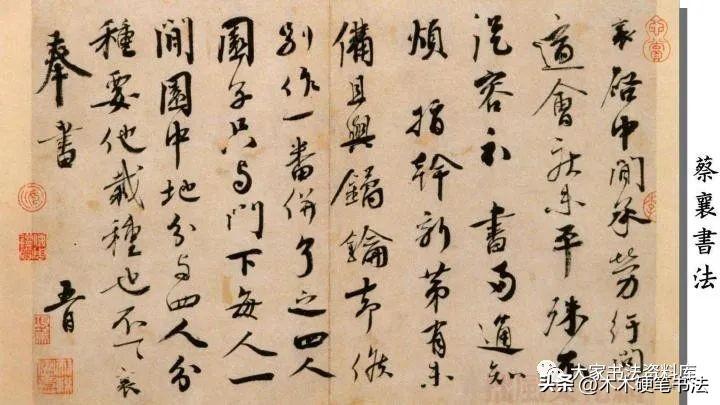 襄啓中間承勞行問
適會疾未平殊不
從容 書 通知
煩指幹新第有未
備且與鐍鑰却候
別作一番併了之四人
園子只与門下每人一
間園中地分与四人分
種要他栽種也不一一襄
奉書 五日
蔡襄書法
大家书法资料库
头条@木木硬笔书法